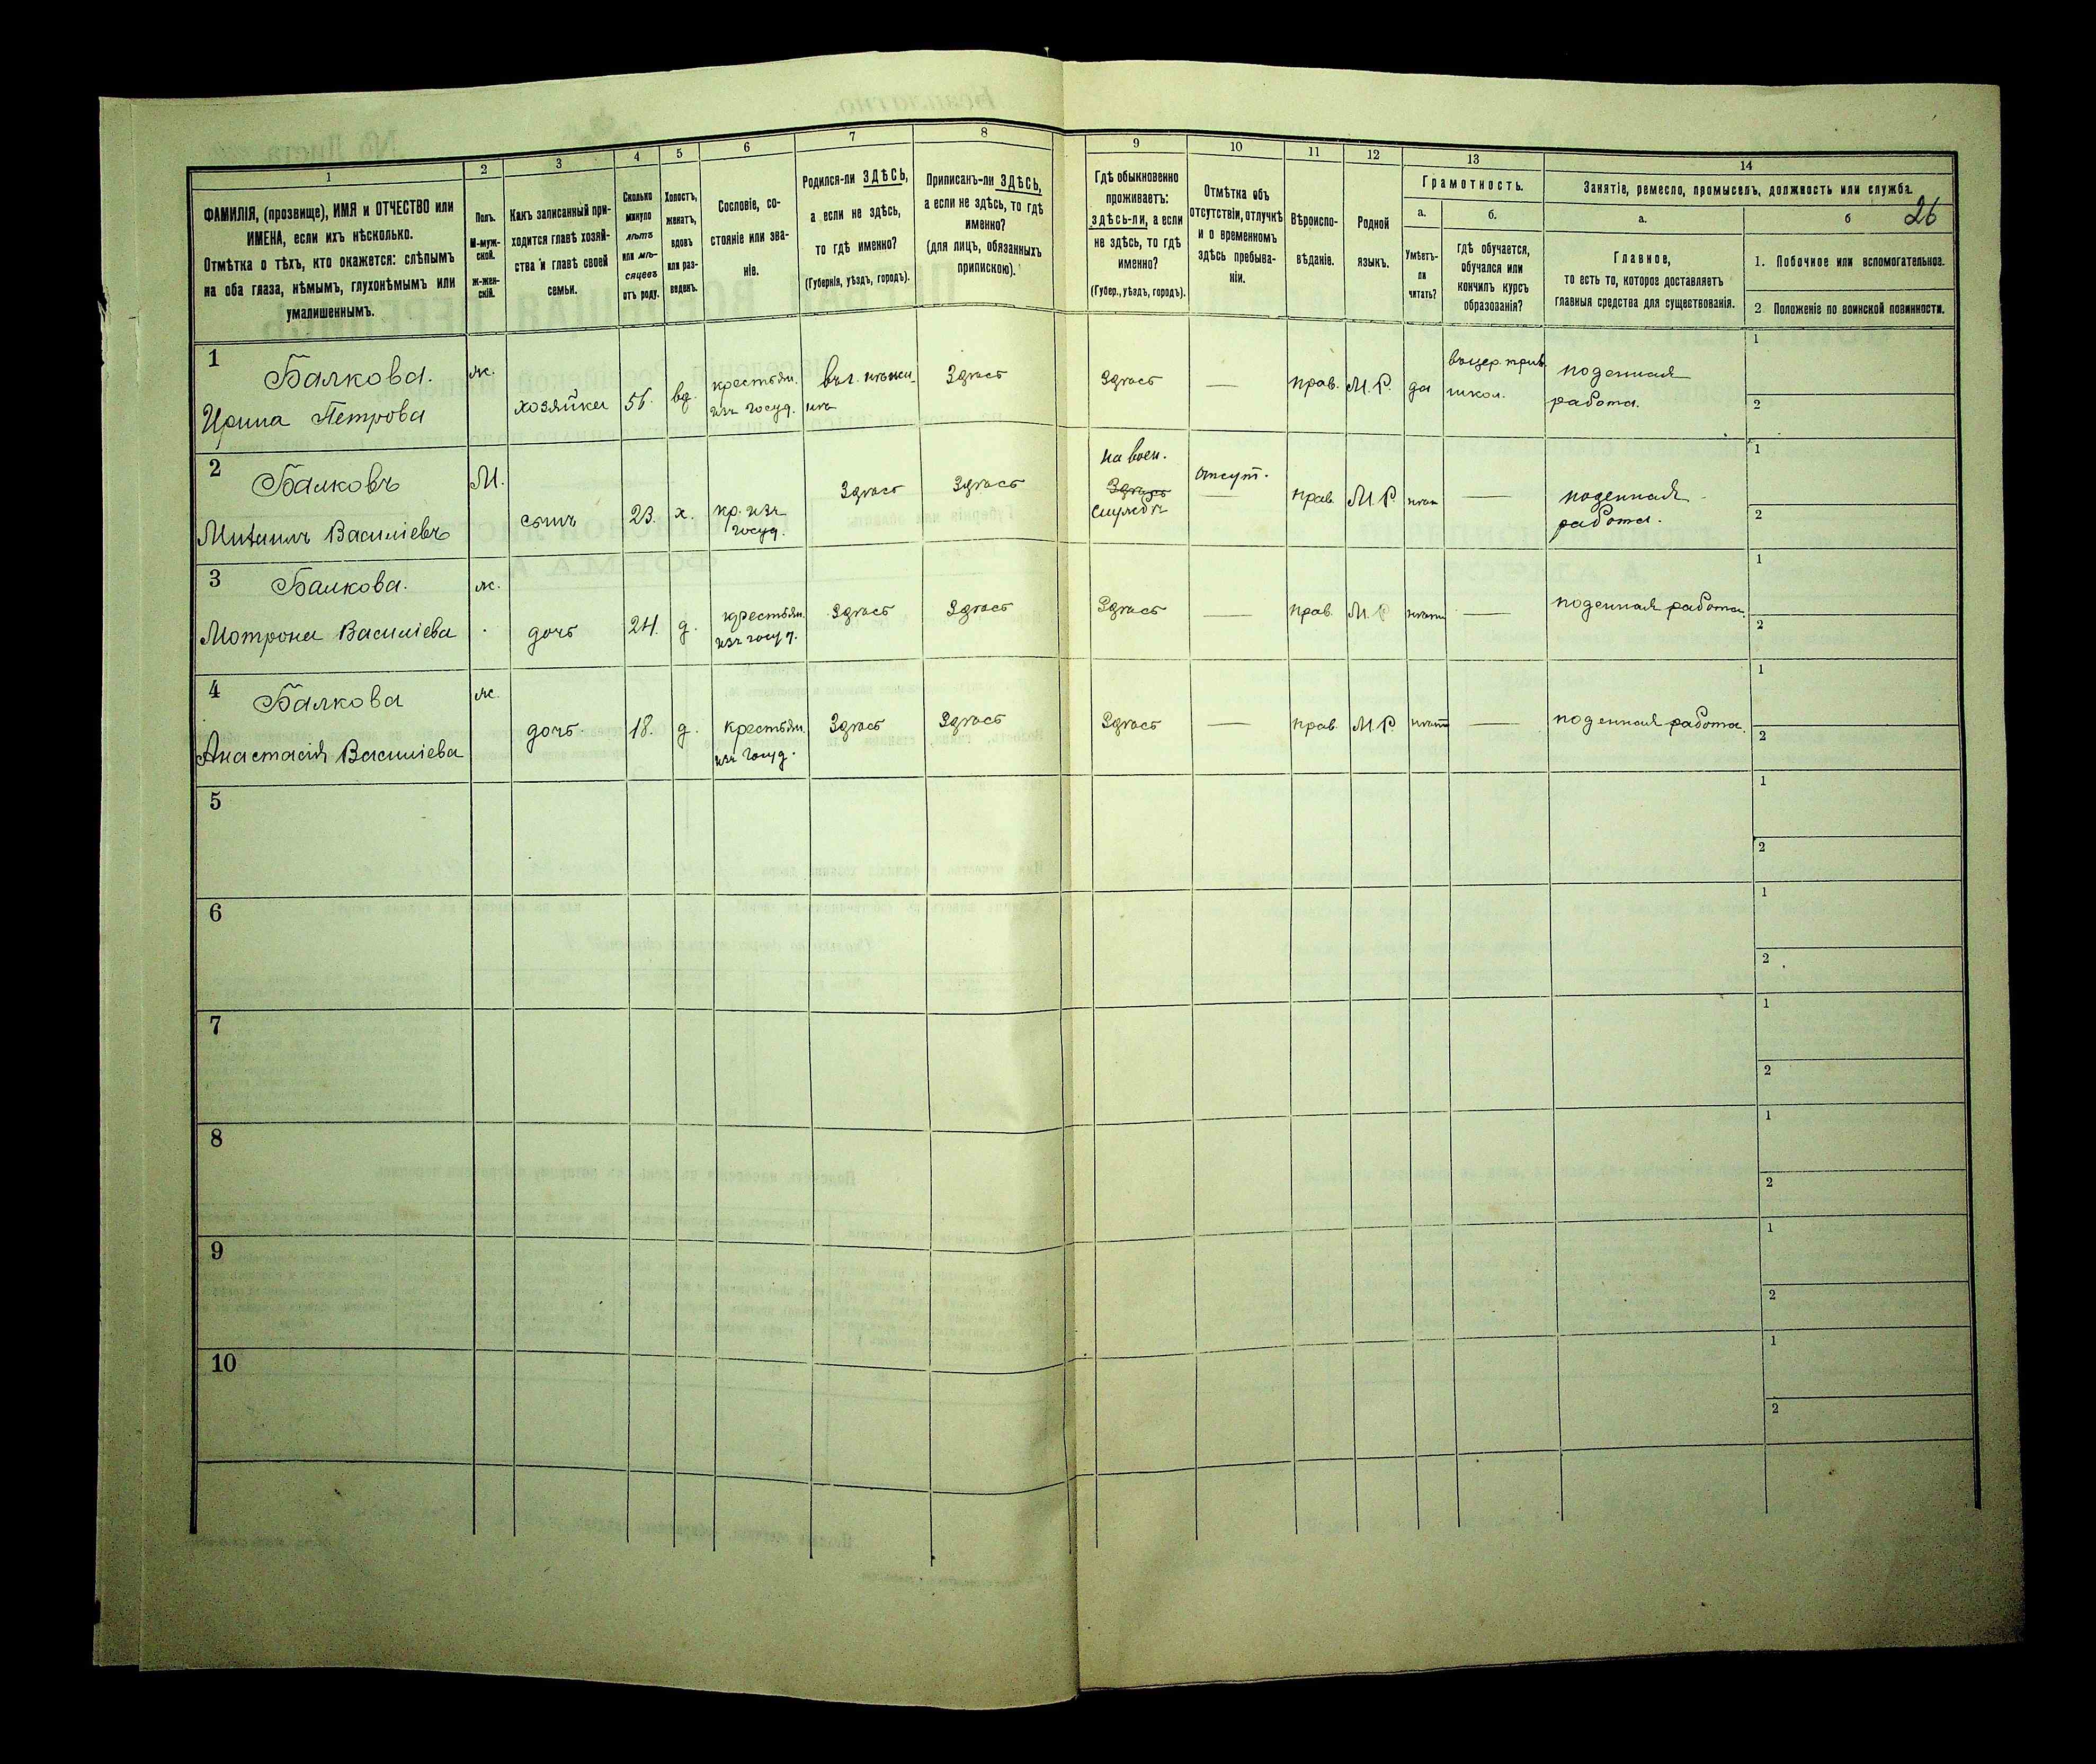 26
1 2 3 4 5 6 7 8 9 10 11 12 13 14
ФАМИЛІЯ, (прозвище), ИМЯ и ОТЧЕСТВО или
ИМЕНА, если ихъ нѣсколько.
Отмѣтка о тѣхъ, кто окажется: слѣпымъ
на оба глаза, нѣмымъ, глухонѣмымъ или
умалишеннымъ.
Полъ.
М-муж-
ской.
Ж-жен-
скій.
Какъ записанный при-
ходится главѣ хозяй-
ства и главѣ своей
семьи.
Сколько
минуло
лѣтъ
или мѣ-
сяцевъ
отъ роду.
Холостъ,
женатъ,
вдовъ
или раз-
веденъ.
Сословіе, со-
стояніе или зва-
ніе.
Родился-ли ЗДѢСЬ,
а если не здѣсь,
то гдѣ именно?
(Губернія, уѣздъ, городъ).
Приписанъ-ли ЗДѢСЬ,
а если не здѣсь, то гдѣ
именно?
(для лицъ, обязанныхъ
припискою).
Гдѣ обыкновенно
проживаетъ:
здѣсь-ли, а если
не здѣсь, то гдѣ
именно?
(Губер., уѣздъ, городъ).
Отмѣтка объ
отсутствіи, отлучкѣ
и о временномъ
здѣсь пребыва-
ніи.
Вѣроиспо-
вѣданіе.
Родной
языкъ.
Грамотность.
а.
Умѣетъ-
ли
читать?
б.
гдѣ обучается,
обучался или
кончилъ курсъ
образованія?
Занятіе, ремесло, промыселъ, должность или служба.
а.
Главное,
то есть то, которое доставляетъ
главныя средства для существованія.
б
1. Побочное или вспомогательное.
2. Положеніе по воинской повинности.
1 Балкова.
Ирина Петрова
ж.
хозяйка
56.
вд.
крестьян.
изъ госуд.
Здѣсь
Здѣсь
—
прав.
М. Р.
да
школ.
поденная
работа.
1
2
2 Балковъ
Михаилъ Василіевъ
М.
сынъ
23.
х.
кр. изъ
госуд.
Здѣсь
Здѣсь
на воен.
Здѣсь
службѣ
отсут.
—
прав.
М. Р
нѣт
—
поденная
работа.
1
2
3 Балкова.
Мотрона Василіева
ж.
дочь
24.
д.
крестьян.
изъ госуд.
Здѣсь
Здѣсь
Здѣсь
—
прав.
М. Р
нѣтъ
—
поденная работа.
1
2
4 Балкова
Анастасія Василіева
ж.
дочь.
18.
д.
крестьян.
изъ госуд.
Здѣсь
Здѣсь
Здѣсь
—
прав.
М. Р.
нѣтъ
—
поденная работа.
1
2
5
1
2
6
1
2
7
1
2
8
1
2
9
1
2
10
1
2